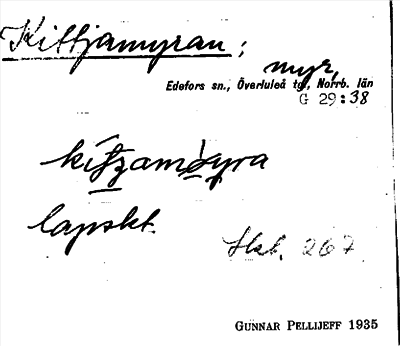 Kittjamyran;
myr,
Edefors sn., Överluleå tg, Norrb. län
G 29:38
lapskt.
Skb. 267
GUNNAR PELLIJEFF 1935